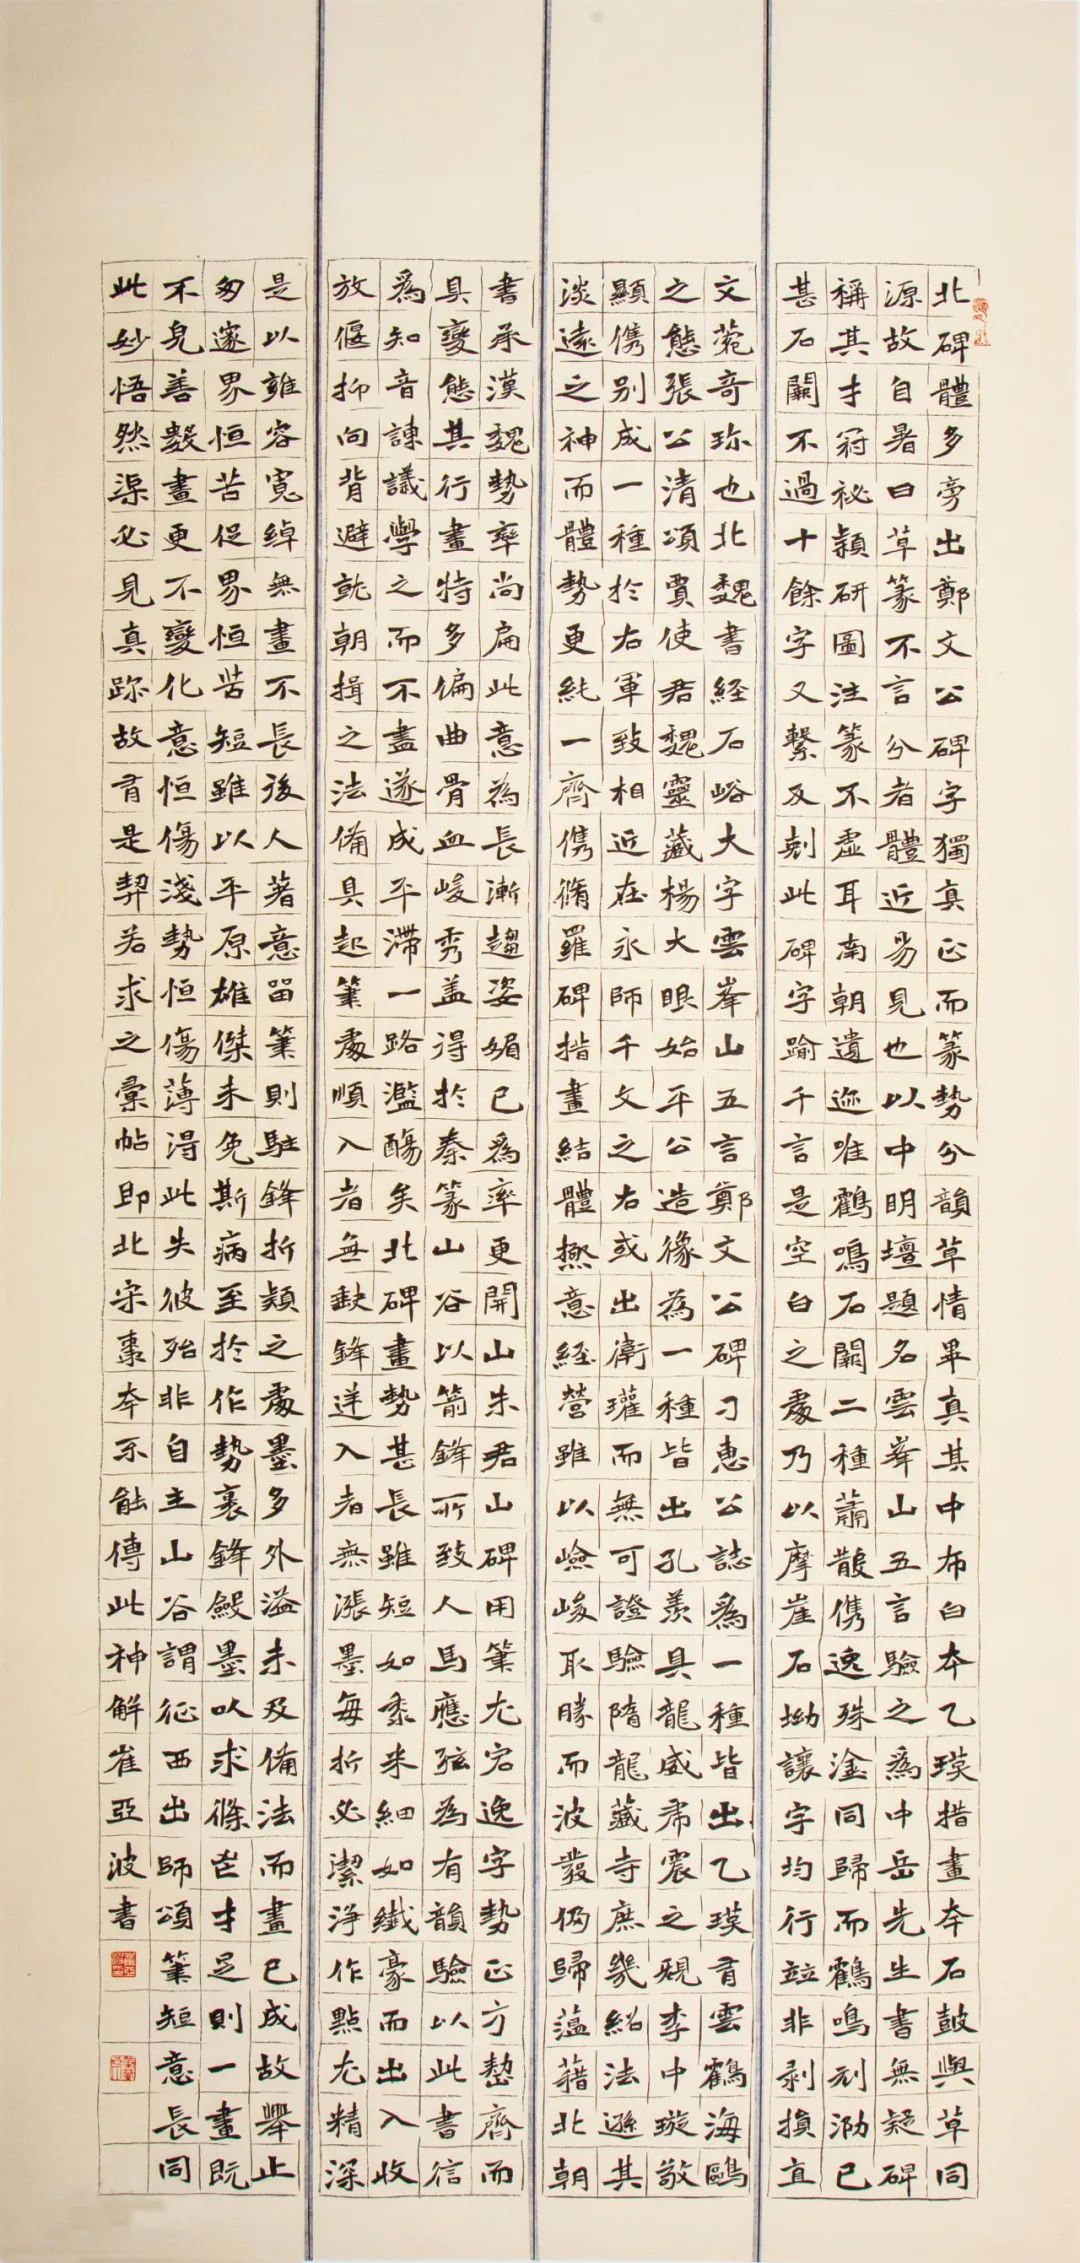 北碑體多旁出鄭文公碑字獨真正而篆勢分韻草情畢真其中布白本乙瑛措畫本石鼓與草同
源故自署曰草篆不言分者體近易見也以中明壇題名雲峯山五言驗之爲中岳先生書無疑碑
稱其才冠祕穎研圖注篆不虛耳南朝遺迹唯鶴鳴石闕二種蕭散儁逸殊淦同歸而鶴鳴刓泐已
甚石闕不過十餘字又繫反刻此碑字踰千言是空白之處乃以摩崖石坳讓字均行竝非剥損直
文菀奇珎也北魏書經石峪大字雲峯山五言鄭文公碑刁惠公誌爲一種皆出乙瑛有雲鶴海鷗
之態張公清頌賈使君魏靈藏楊大眼始平公造像為一種皆出孔羨具龍威虎震之規李中璇敬
顯儁別成一種於右軍致相近在永師千文之右或出衛瓘而無可證驗隋龍藏寺庶幾紹法遜其
淡遠之神而體勢更純一齊儁脩羅碑措畫結體極意經營雖以嶮峻取勝而波發仍歸蕰藉北朝
書承漢魏勢率尚扁此意為長漸趨姿媚已爲率更開山朱君山碑用筆尤宕逸字勢正方整齊而
具變態其行畫特多偏曲骨血峻秀盖得於秦篆山谷以箭鋒所致人馬應弦為有韻驗以此書信
爲知音諫議學之而不盡遂成平滯一路濫觴矣北碑畫勢甚長雖短如黍米細如纖豪而出入收
放偃抑向背避就朝揖之法備具起筆處順入者無缺鋒逆入者無漲墨每折必潔淨作點尤精深
是以雍容寬綽無畫不長後人著意留筆則駐鋒折穎之處墨多外溢未及備法而畫已成故舉止
匆遽界恒苦促界恒苦短雖以平原雄傑未免斯病至於作勢裹鋒斂墨以求條芒才足則一畫既
不皃善數畫更不變化意恒傷淺勢恒傷薄得此失彼殆非自主山谷謂征西出師頌筆短意長同
此妙悟然渠必見真跡故有是契若求之彙帖即北宋棗本不能傳此神解崔亞波書